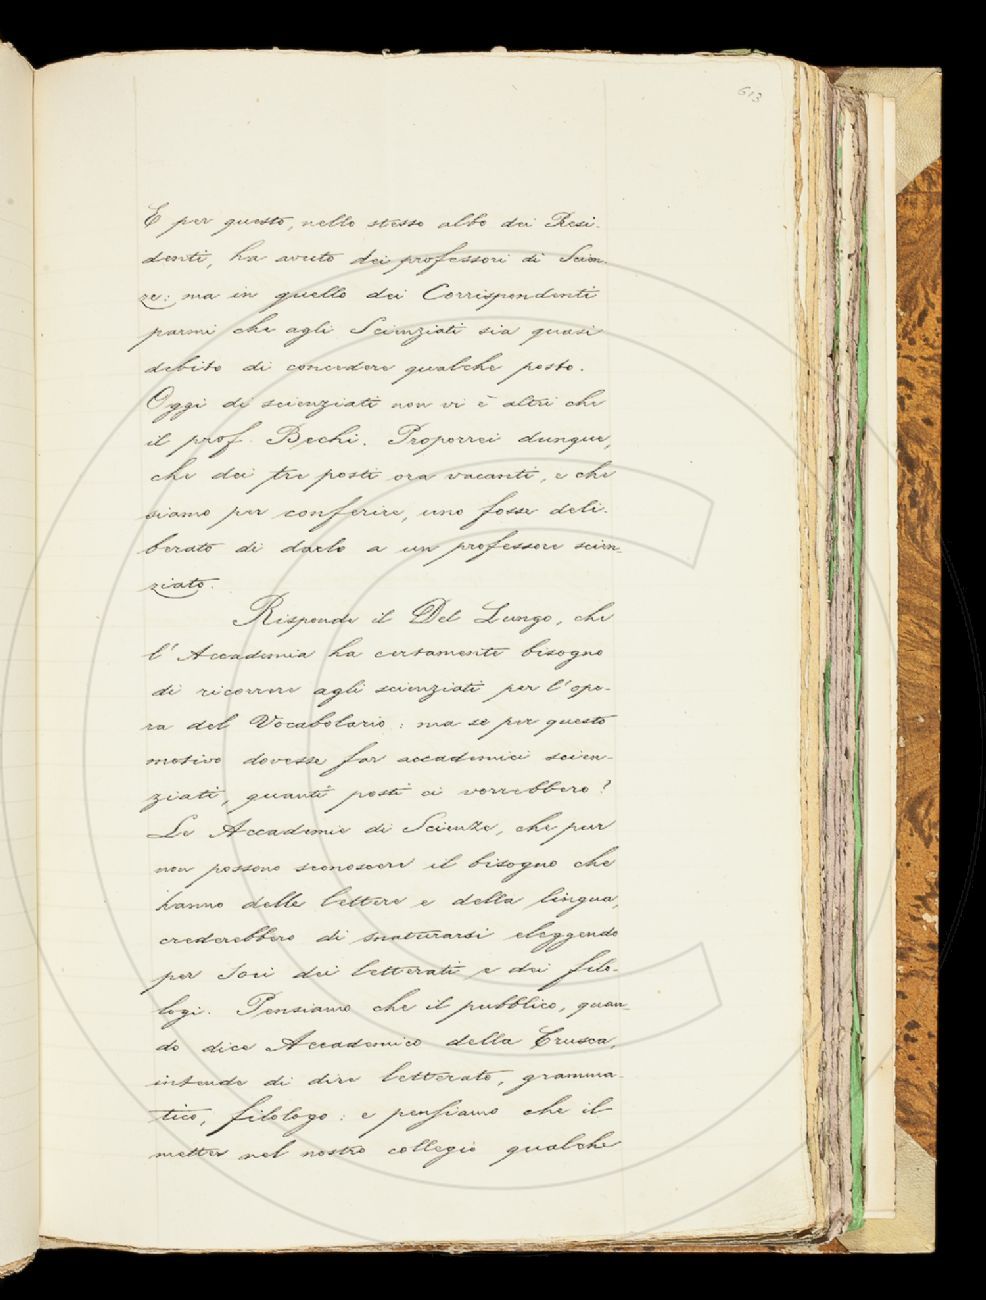 613
E per questo, nello stesso albo dei Resi-
denti, ha avuto dei professori di Scien-
ze: ma in quello dei Corrispondenti
parmi che agli Scienziati sia quasi
debito di concedere qualche posto.
Oggi di scienziati non vi è altri che
il prof. Bechi. Proporrei dunque,
che dei tre posti ora vacanti, e che
siamo per conferire, uno fosse deli-
berato di darlo a un professore scien-
ziato.
Risponde il Del Lungo, che
l'Accademia ha certamente bisogno
di ricorrere agli scienziati per l'ope-
ra del Vocabolario: ma se per questo
motivo dovesse far accademici scien-
ziati, quanti posti ci vorrebbero?
Le Accademie di Scienze, che pur
non possono sconoscere il bisogno che
hanno delle lettere e della lingua,
crederebbero di snaturarsi eleggendo
per Soci dei letterati e dei filo-
logi. Pensiamo che il pubblico, quan-
do dice Accademico della Crusca,
intende di dire letterato, gramma-
tico, filologo: e pensiamo che il
metter nel nostro collegio qualche